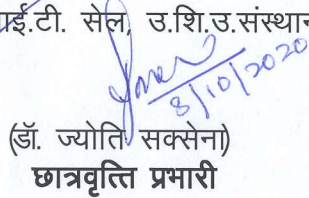 आई.टी. सेल, उ.शि.उ.संस्थान
8/10/2020
(डॉ. ज्योति सक्सेना)
छात्रवृत्ति प्रभारी